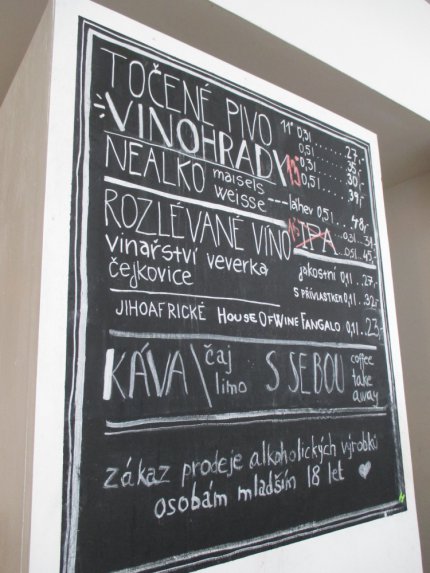 TOČENÉ PIVO 11° 0,3l ...... 27,-
VINOHRADY 0,5l ...... 35,-
13° 0,3l ...... 30,-
0,5l ...... 39,-
NEALKO maisels weisse --- láhev 0,5l .. 48,-
ROZLÉVANÉ VÍNO IPA 0,3l . 34,-
0,5l . 45,-
vinařství veverka jakostní 0,1l . 27,-
čejkovice S PŘÍVLASTKEM 0,1l . 32,-
JIHOAFRICKÉ HOUSE OF WINE FANGALO 0,1l . 23,-
KÁVA \ čaj limo S SEBOU coffee take away
zákaz prodeje alkoholických výrobků
osobám mladším 18 let ♥